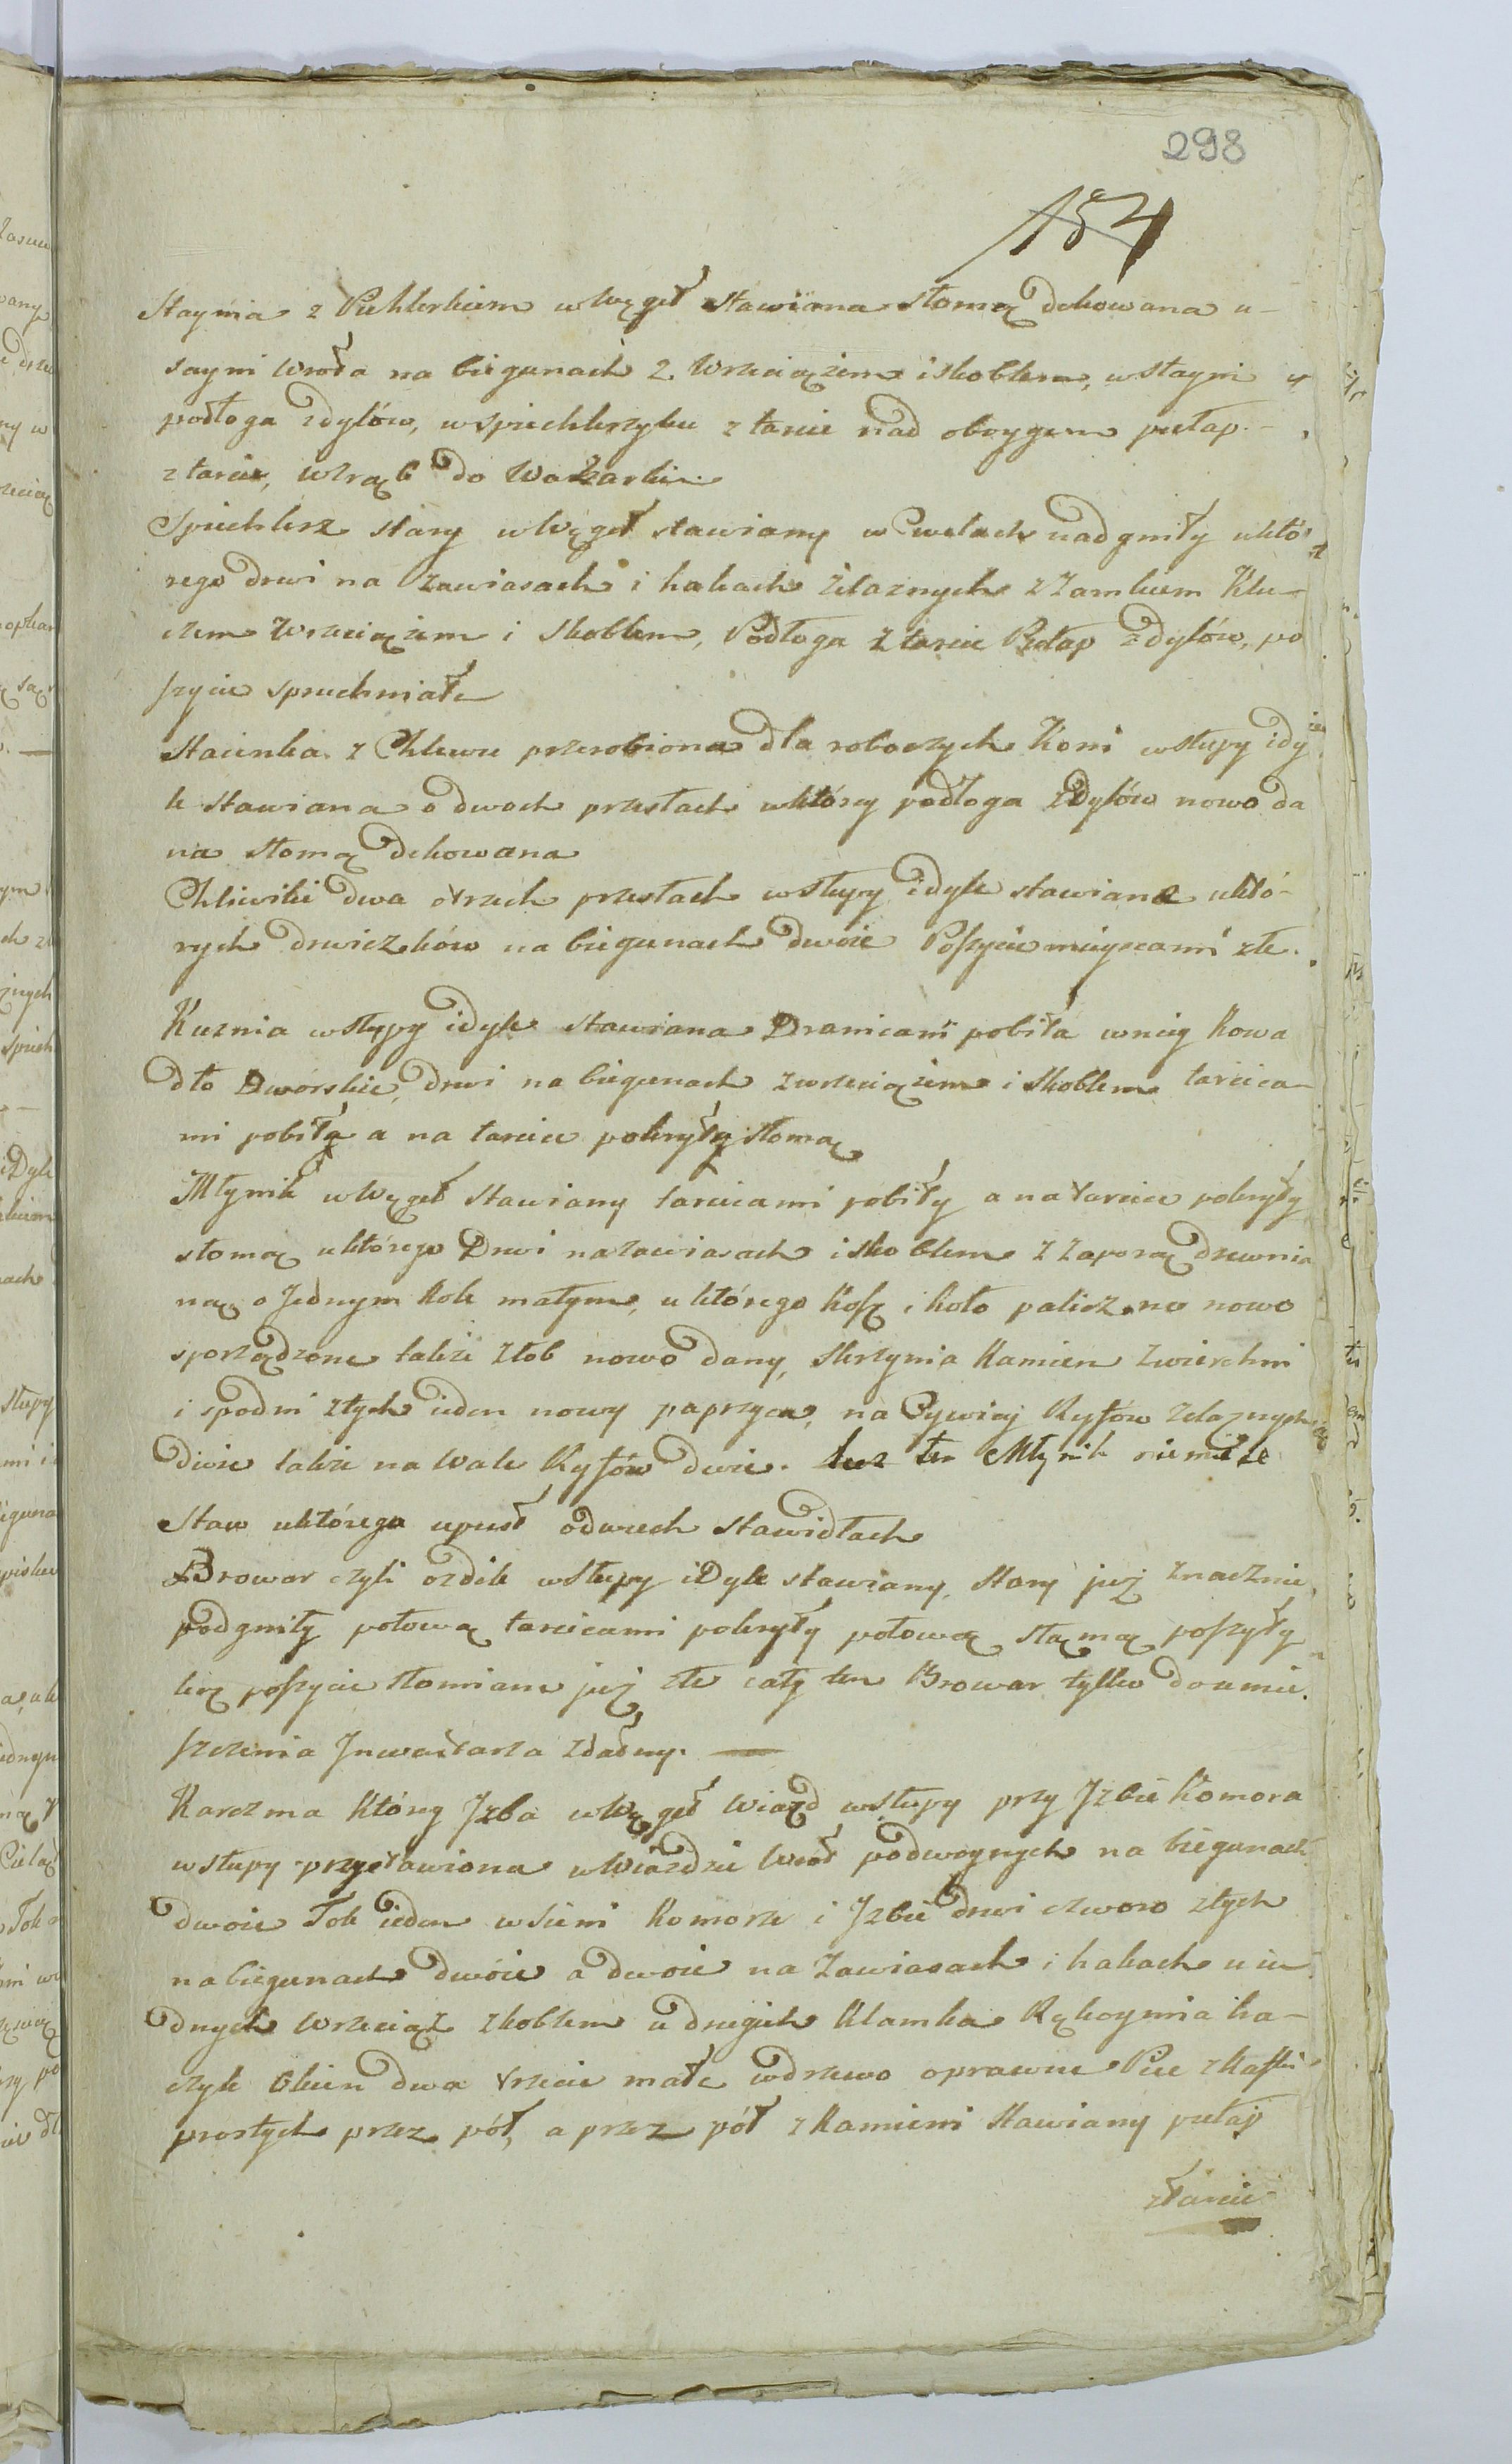 298
154
Staynia z Pichlerkiem w Węgeł stawiana słomą dekowana u
sayni wrota na biegunach z wrzeciązem i skoblem, w stayni
podłoga z dylów, w spichlerzyku z tarcic nad oboygem pułap
z tarcic, wrąb do
Spichlerz stary w Węgeł stawiany w Cwelach nadgniły u któ
rego drzwi na zawiasach i hakach żelaznych z Zamkiem Klu-
czem Wrzeciązem i Skoblem, Podłoga z tarcic Pułap z dylów, po
szycie spruchniałe
Staienka z Chlewu przerobiona dla roboczych Koni w słupy i dy
le stawiana o dwoch przesłach w który podłoga z Dylów nowo da
na słomą dekowana
Chliwiki dwa o trzech przesłach w słupy i dyle stawiane u któ-
rych drwiczków na biegunach dwoie Poszycie mieyscami złe.
Kuznia w słupy i dyle stawiana Dranicami pobita w niey Kowa
dło Dworskie, drwi na biegunach z wrzeciązem i Skoblem tarcica-
mi pobitą a na tarcice pokrytą słomą
Młynik w Węgeł stawiany tarcicami pobity a na tarcice pokryty
słomą u którego Drwi na zawiasach i skoblem z Zaporą drewnia
ną o Jednym kole małym, u którego Kosz i koło paliczne nowo
sporządzone także złob nowo dany, Skrzynia Kamien zwierchni
i spodni złych ieden nowy paprzyca, na Cywiey Ryfow zelaznych
dwie także na Wale Ryfów dwie. lecz ten Młynik niemiele
Staw u którego upust o dwuch stawidłach
Browar czyli ozdik w Słupy i Dyle stawiany, stary już znacznie
podgniły połową tarcicami pokryty połową słomą poszyty
lecz poszycie słomiane już złe cały ten Browar tylko do umie
szczenia Jnwentarza zdadny.
Karczma Który Jzba w Węgeł Wiazd w słupy przy Jzbie Komora
w słupy przystawiona w Wiazdzie Wrot podwoynych na biegunach
dwoie Tok ieden w Sieni Komorze i Jzbie drwi czworo złych
na biegunach dwoie a dwoie na Zawiasach i hakach u ie
dnych Wrzeciąż z koblem u drugich Klamka Rękoymia ha-
czyk Okien dwa trzecie małe w drzewo oprawne Piec z Kafli
prostych przez pół, a przez pół z Kamieni stawiany pułap
z tarcic